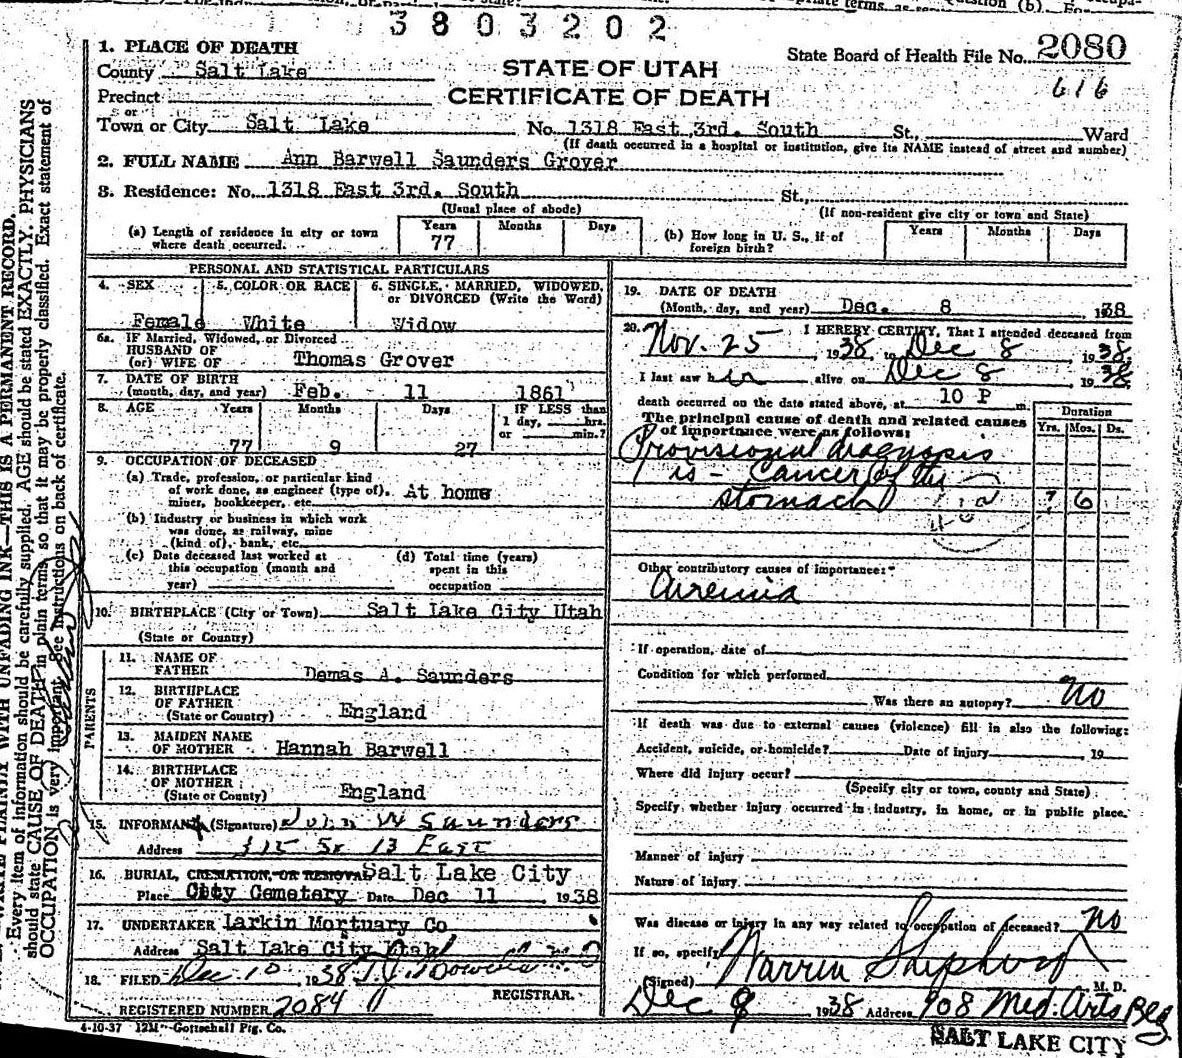 3803202
1. PLACE OF DEATH
County Salt Lake
STATE OF UTAH
CERTIFICATE OF DEATH
State Board of Health File No. 2080
616
Precinct
or
Town or City Salt Lake No. 1318 East 3rd. South St., Ward
(If death occurred in a hospital or institution, give its NAME instead of street and number)
2. FULL NAME Ann Barwell Saunders Grover
3. Residence: No. 1318 East 3rd. South St.,
(Usual place of abode) (If non-resident give city or town and State)
(a) Length of residence in city or town where death occurred. Years 77 Months Days
(b) How long in U. S., if of foreign birth? Years Months Days
PERSONAL AND STATISTICAL PARTICULARS
4. SEX Female
5. COLOR OR RACE White
6. SINGLE, MARRIED, WIDOWED, or DIVORCED (Write the Word) Widow
6a. IF Married, Widowed, or Divorced
HUSBAND OF
(or) WIFE OF Thomas Grover
7. DATE OF BIRTH
(month, day, and year) Feb. 11 1861
8. AGE Years 77 Months 9 Days 27 IF LESS than 1 day, hrs. or min.?
9. OCCUPATION OF DECEASED
(a) Trade, profession, or particular kind
of work done, as engineer (type of),
miner, bookkeeper, etc. At home
(b) Industry or business in which work
was done, as railway, mine
(kind of), bank, etc.
(c) Date deceased last worked at
this occupation (month and
year)
(d) Total time (years)
spent in this
occupation
10. BIRTHPLACE (City or Town) Salt Lake City Utah
(State or Country)
PARENTS
11. NAME OF
FATHER Demas A. Saunders
12. BIRTHPLACE
OF FATHER
(State or Country) England
13. MAIDEN NAME
OF MOTHER Hannah Barwell
14. BIRTHPLACE
OF MOTHER
(State or Country) England
15. INFORMANT (Signature) John W Saunders
Address 315 So 13 East
16. BURIAL, CREMATION, OR REMOVAL Salt Lake City
Place City Cemetery Date Dec 11 1938
17. UNDERTAKER Larkin Mortuary Co
Address Salt Lake City Utah
18. FILED Dec 10 1938
REGISTRAR.
REGISTERED NUMBER 2084
4-10-37 12M Gottschall Ptg. Co.
19. DATE OF DEATH
(Month, day, and year) Dec. 8 1938
20. I HEREBY CERTIFY, That I attended deceased from
Nov. 25 1938, to Dec 8 1938
I last saw her alive on Dec 8 1938
death occurred on the date stated above, at 10 P m.
The principal cause of death and related causes
of importance were as follows:
Duration
Yrs. Mos. Ds.
Provisional diagnosis
is - Cancer of the
stomach ? 6
Other contributory causes of importance:
If operation, date of
Condition for which performed
Was there an autopsy? no
If death was due to external causes (violence) fill in also the following:
Accident, suicide, or homicide? Date of injury 19
Where did injury occur?
(Specify city or town, county and State)
Specify, whether injury occurred in industry, in home, or in public place.
Manner of injury
Nature of injury
Was disease or injury in any way related to occupation of deceased? no
If so, specify
(Signed) Warren Shepherd M. D.
Dec 9 1938 Address 908 Med. Arts Bldg.
SALT LAKE CITY
WRITE PLAINLY WITH UNFADING INK—THIS IS A PERMANENT RECORD.
Every item of information should be carefully supplied. AGE should be stated EXACTLY. PHYSICIANS
should state CAUSE OF DEATH in plain terms, so that it may be properly classified. Exact statement of
OCCUPATION is very important. See instructions on back of certificate.